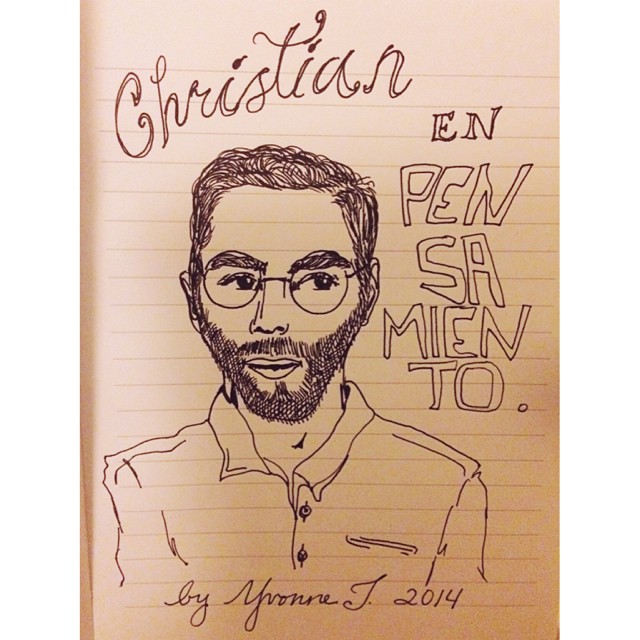 Christian
EN
PEN
SA
MIEN
TO.
by Yvonne J. 2014